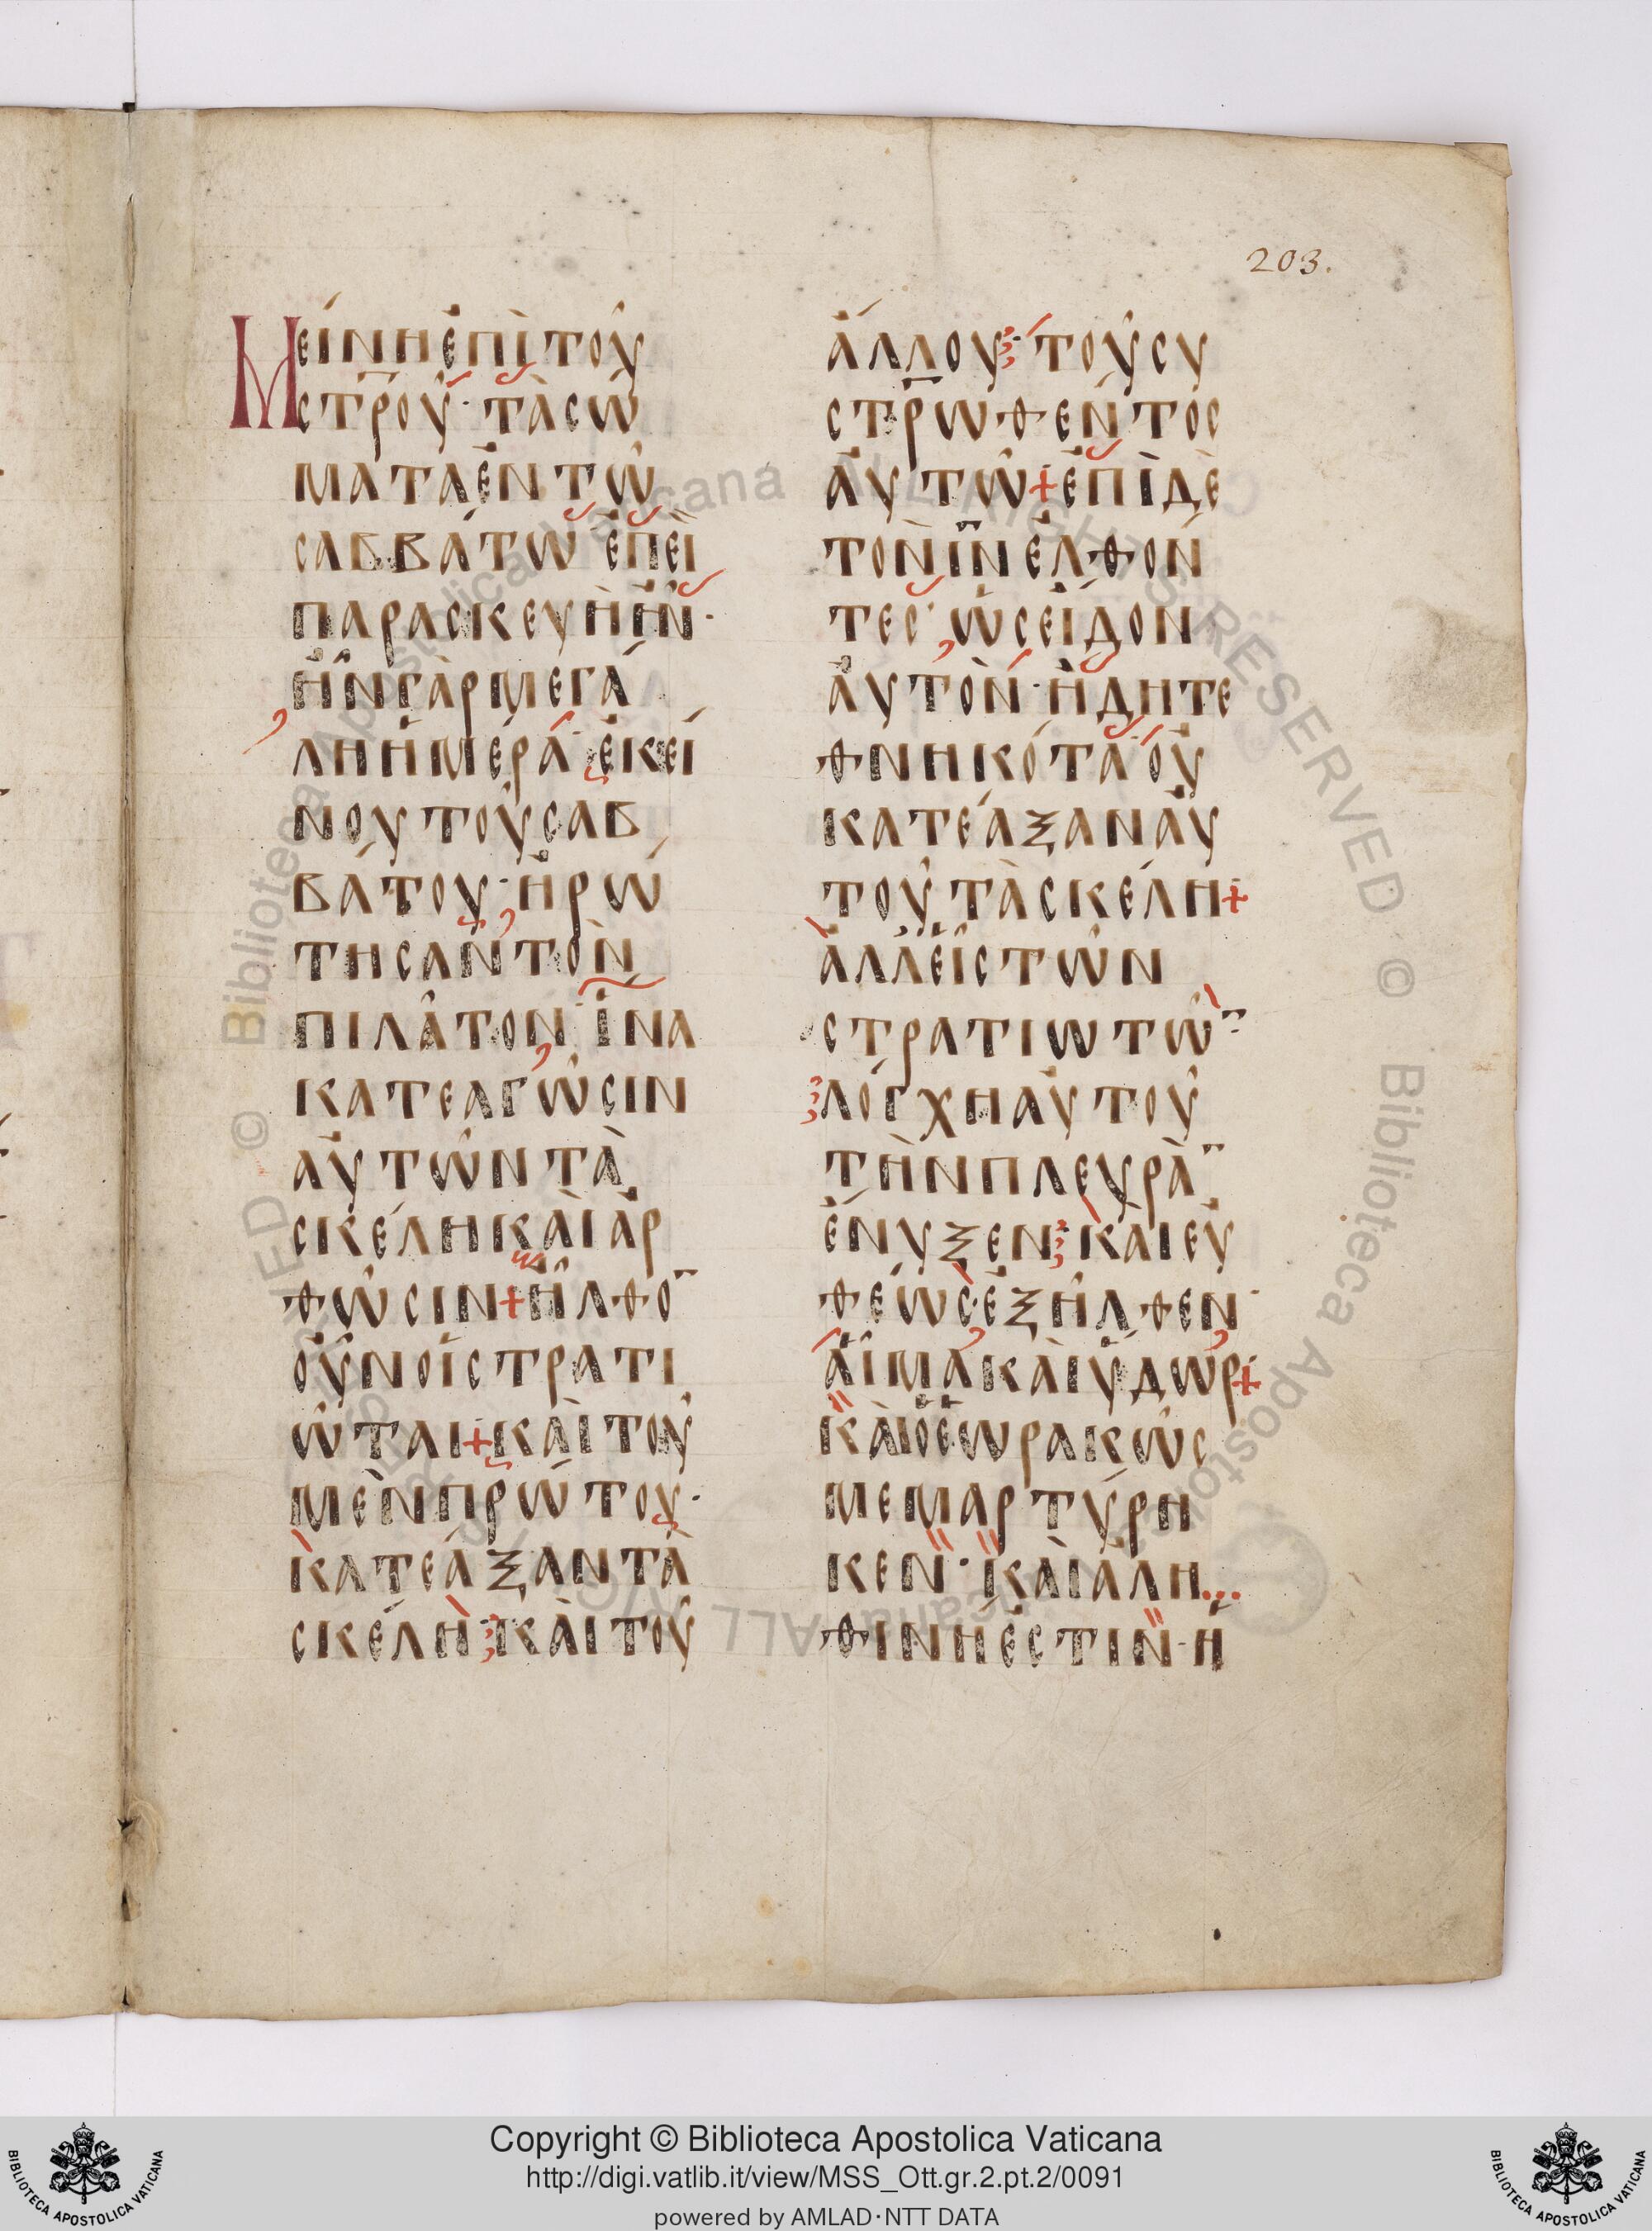 203.
Μείνη ἐπὶ τοῦ
στ̅ρ̅οῦ· τὰ σώ
ματα ἐν τῶ
σαββάτω ἐπεὶ
παρασκευὴ ἦν·
ἦν γὰρ μεγά
λη ἡμέρα· ἐκεί
νου τοῦ σαβ
βάτου· ἠρώ
τησαν τὸν
πιλᾶτον· ἵνα
κατεαγῶσιν
αὐτῶν τὰ
σκέλη καὶ ἀρ
θῶσιν + ἦλθο̅
οὖν οἱ στρατι
ῶται + καὶ τοῦ
μὲν πρώτου·
κατέαξαν τὰ
σκέλη· καὶ τοῦ
ἄλλου· τοῦ συ
στ̅ρ̅ωθέντος
αὐτῶ + ἐπὶ δὲ
τὸν ι̅ν̅ ἐλθόν
τες· ὡς εἶδον
αὐτὸν· ἤδη τε
θνηκότα· οὐ
κατέαξαν αὐ
τοῦ τὰ σκέλη +
ἀλλ' εἷς τῶν
στρατιωτῶ̅·
λόγχη αὐτοῦ
τὴν πλευρὰ̅
ἔνυξεν· καὶ εὐ
θέως ἐξῆλθεν·
αἷμα καὶ ὕδωρ +
καὶ ὁ ἑωρακὼς
μεμαρτύρη
κεν· καὶ ἀλη
θινὴ ἐστὶν· ἡ
Copyright © Biblioteca Apostolica Vaticana
http://digi.vatlib.it/view/MSS_Ott.gr.2.pt.2/0091
powered by AMLAD·NTT DATA
BIBLIOTECA APOSTOLICA VATICANA
BIBLIOTECA APOSTOLICA VATICANA